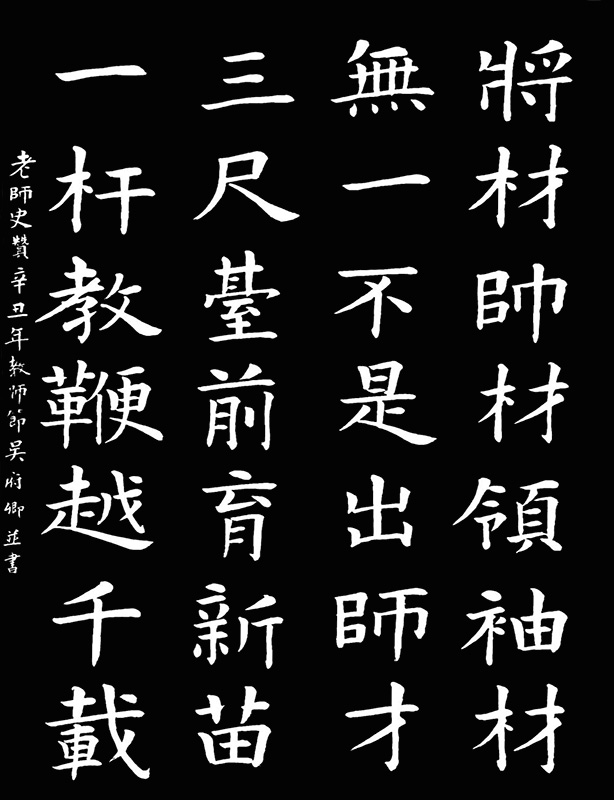 將材帥材領袖材
無一不是出師才
三尺臺前育新苗
一杆教鞭越千載
老師史贊辛丑年教师節吴府卿並書